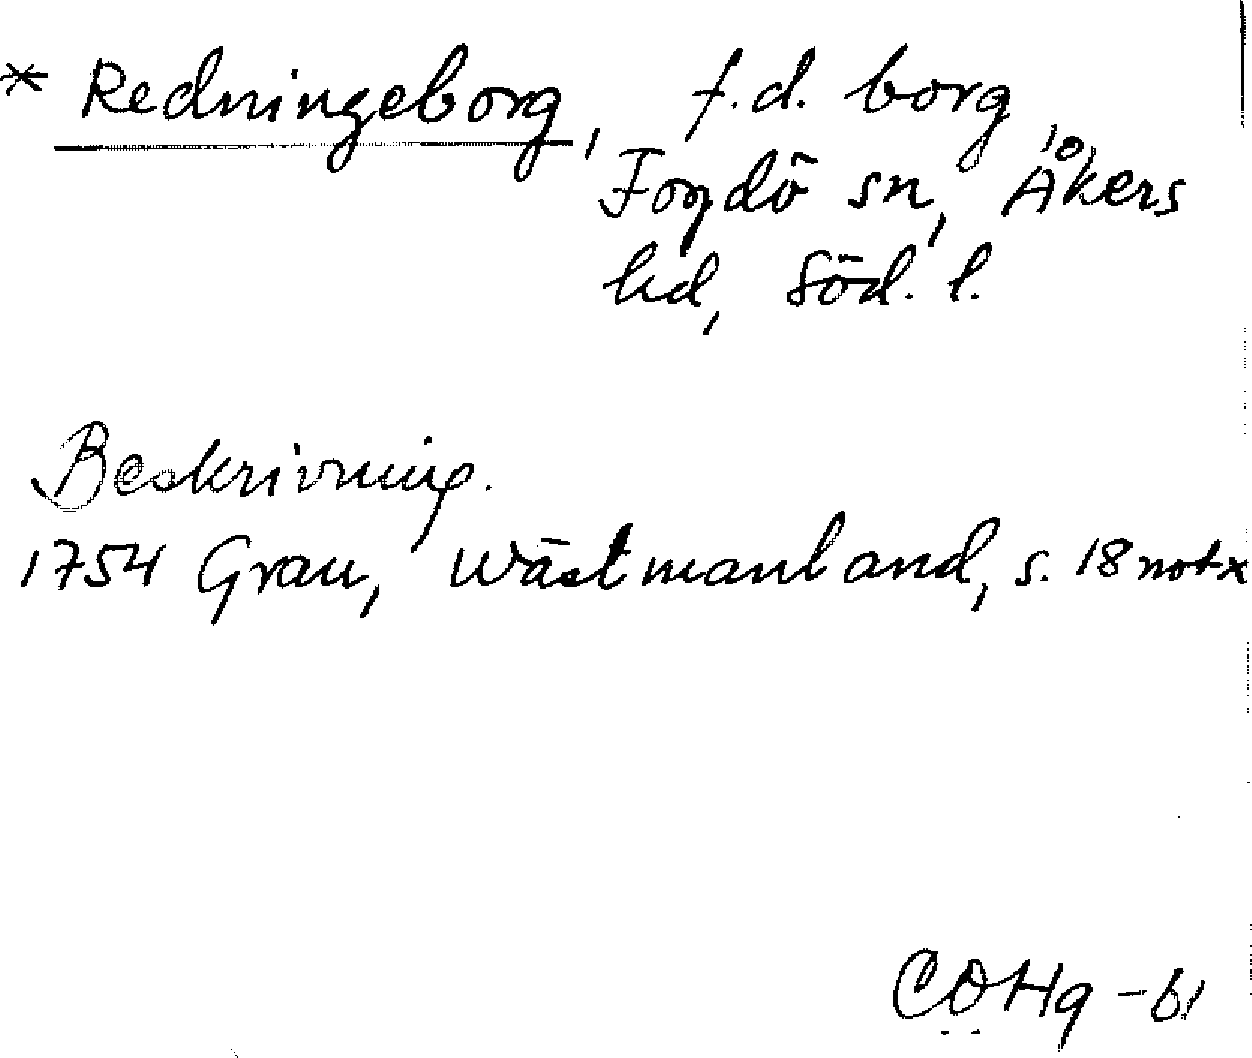 * Redningeborg, f.d. borg
Fogdö sn, Åkers
hd, Söd. l.
Beskrivning.
1754 Grau, Wästmanland, s. 18 not x
COHq -61